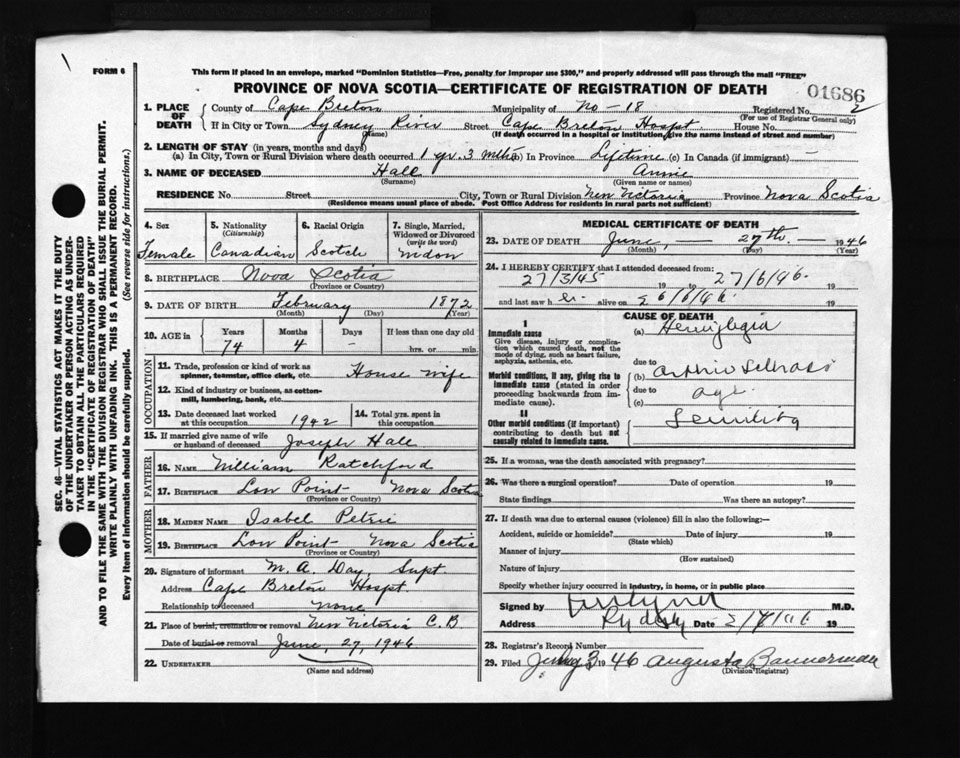 FORM 6
This form if placed in an envelope, marked "Dominion Statistics—Free, penalty for improper use $300," and properly addressed will pass through the mail "FREE"
PROVINCE OF NOVA SCOTIA—CERTIFICATE OF REGISTRATION OF DEATH
01686
1. PLACE OF DEATH
County of Cape Breton Municipality of No - 18 Registered No. 2
(For use of Registrar General only)
If in City or Town Sydney River Street Cape Breton Hospt. House No.
(Name) (If death occurred in a hospital or institution, give the name instead of street and number)
2. LENGTH OF STAY (in years, months and days)
(a) In City, Town or Rural Division where death occurred 1 yr. 3 mths (b) In Province Lifetime (c) In Canada (if immigrant) —
3. NAME OF DECEASED Hall Annie
(Surname) (Given name or names)
RESIDENCE No. Street City, Town or Rural Division New Victoria Province Nova Scotia
(Residence means usual place of abode. Post Office Address for residents in rural parts not sufficient)
SEC. 46—VITAL STATISTICS ACT MAKES IT THE DUTY
OF THE UNDERTAKER OR PERSON ACTING AS UNDER-
TAKER TO OBTAIN ALL THE PARTICULARS REQUIRED
IN THE "CERTIFICATE OF REGISTRATION OF DEATH"
AND TO FILE THE SAME WITH THE DIVISION REGISTRAR WHO SHALL ISSUE THE BURIAL PERMIT.
WRITE PLAINLY WITH UNFADING INK. THIS IS A PERMANENT RECORD.
Every item of information should be carefully supplied. (See reverse side for instructions.)
4. Sex
Female
5. Nationality
(Citizenship)
Canadian
6. Racial Origin
Scotch
7. Single, Married,
Widowed or Divorced
(write the word)
widow
8. BIRTHPLACE Nova Scotia
(Province or Country)
9. DATE OF BIRTH February 1872
(Month) (Day) (Year)
10. AGE in
Years Months Days If less than one day old
74 4 - hrs. or min.
OCCUPATION
11. Trade, profession or kind of work as
spinner, teamster, office clerk, etc. House wife
12. Kind of industry or business, as cotton-
mill, lumbering, bank, etc.
13. Date deceased last worked
at this occupation 1942
14. Total yrs. spent in
this occupation
15. If married give name of wife
or husband of deceased Joseph Hall
FATHER
16. NAME William Ratchford
17. BIRTHPLACE Low Point - Nova Scotia
(Province or Country)
MOTHER
18. MAIDEN NAME Isabel Petrie
19. BIRTHPLACE Low Point - Nova Scotia
(Province or Country)
20. Signature of informant M. A. Day, Supt.
Address Cape Breton Hospt.
Relationship to deceased none
21. Place of burial, cremation or removal New Victoria C.B
Date of burial or removal June, 27, 1946
22. UNDERTAKER
(Name and address)
MEDICAL CERTIFICATE OF DEATH
23. DATE OF DEATH June, — 27th. 1946
(Month) (Day) (Year)
24. I HEREBY CERTIFY that I attended deceased from:
27/3/45 19 to 27/6/46 19
and last saw her alive on 26/6/46 19
CAUSE OF DEATH
I
Immediate cause
Give disease, injury or complica-
tion which caused death, not the
mode of dying, such as heart failure,
asphyxia, asthenia, etc.
(a) Hemiplegia
due to
Morbid conditions, if any, giving rise to
immediate cause (stated in order
proceeding backwards from im-
mediate cause).
(b)
due to
(c) age
II
Other morbid conditions (if important)
contributing to death but not
causally related to immediate cause.
Senility
25. If a woman, was the death associated with pregnancy?
26. Was there a surgical operation? Date of operation 19
State findings Was there an autopsy?
27. If death was due to external causes (violence) fill in also the following:—
Accident, suicide or homicide? Date of injury 19
(State which)
Manner of injury
(How sustained)
Nature of injury
Specify whether injury occurred in industry, in home, or in public place
Signed by M.D.
Address Date 19
28. Registrar's Record Number
29. Filed 3 1946 Augusta Bannerman
(Division Registrar)